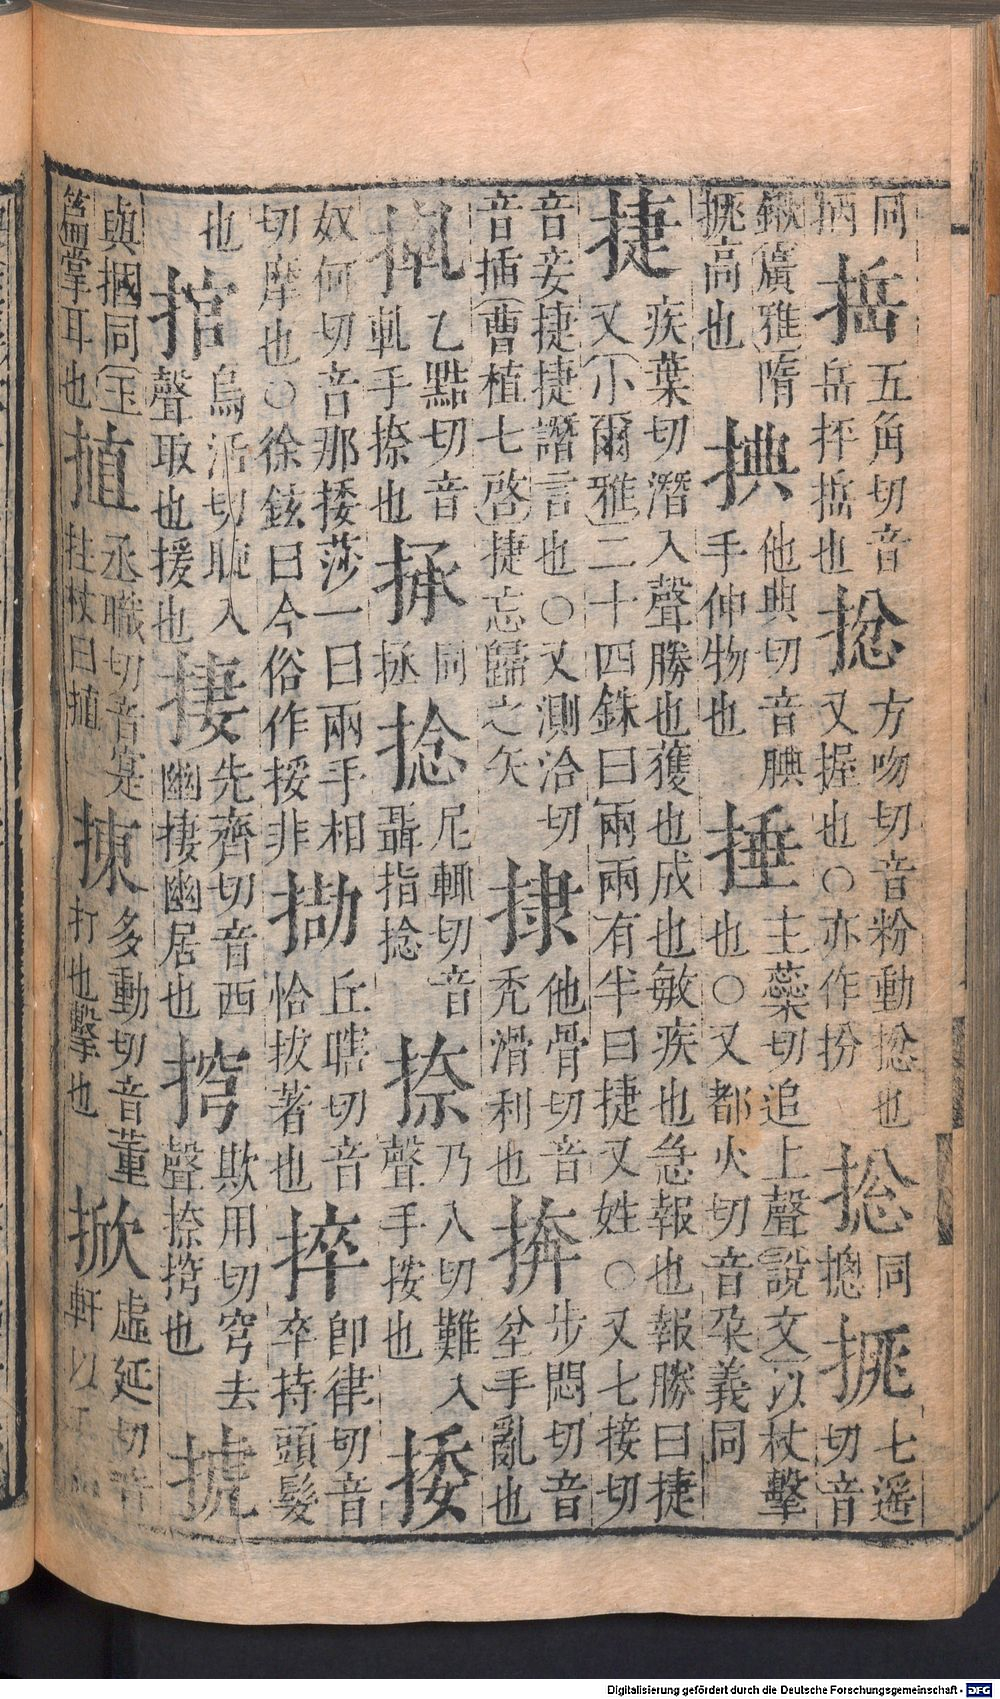 同柄捳五角切音岳抨捳也㧾方吻切音粉動㧾也又握也○亦作扮捴同摠七遥切音
鍬(廣雅)隋高也捵他典切音腆手伸物也捶主蘂切追上聲(說文)以杖擊也○又都火切音朶義同
捷疾葉切潛入聲勝也獲也成也敏疾也急報也報勝曰捷又(小爾雅)二十四銖曰兩兩有半曰捷又姓○又七接切
音妾捷捷譖言也○又測洽切音插(曹植七啓)捷忘歸之矢捸他骨切音禿滑利也捹步悶切音坌手亂也
乙點切音軋手捺也同拯捻尼輒切音聶指捻捺乃入切難入聲手按也捼
奴何切音那捼莎一曰兩手相切摩也○徐鉉曰今俗作挼非丘瞎切音恰拔著也捽卽律切音卒持頭髮
也捾烏活切剜入聲取也援也捿先齊切音西幽捿幽居也欺用切穹去聲捺也
與摑同(玉篇)掌耳也丞職切音寔拄杖曰揀多動切音董打也擊也掀虛延切音軒以
Digitalisierung gefördert durch die Deutsche Forschungsgemeinschaft - DFG